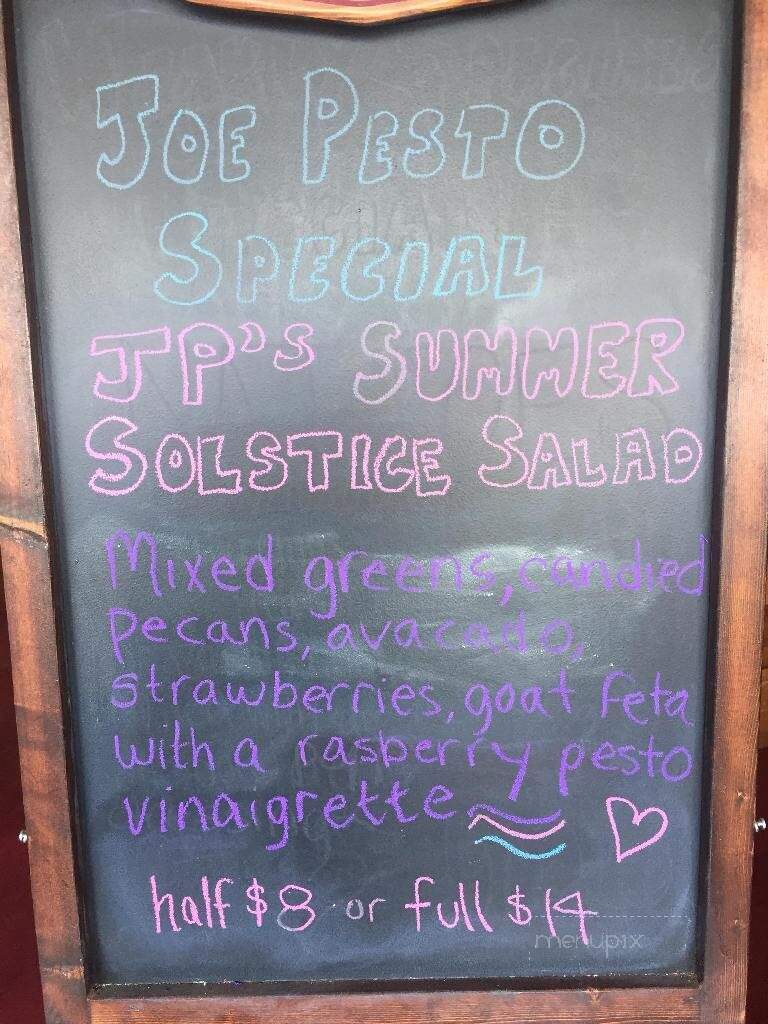 JOE PESTO
SPECIAL
JP'S SUMMER
SOLSTICE SALAD
Mixed greens, candied
pecans, avacado,
strawberries, goat feta
with a rasberry pesto
vinaigrette
half $8 or full $14
menupix